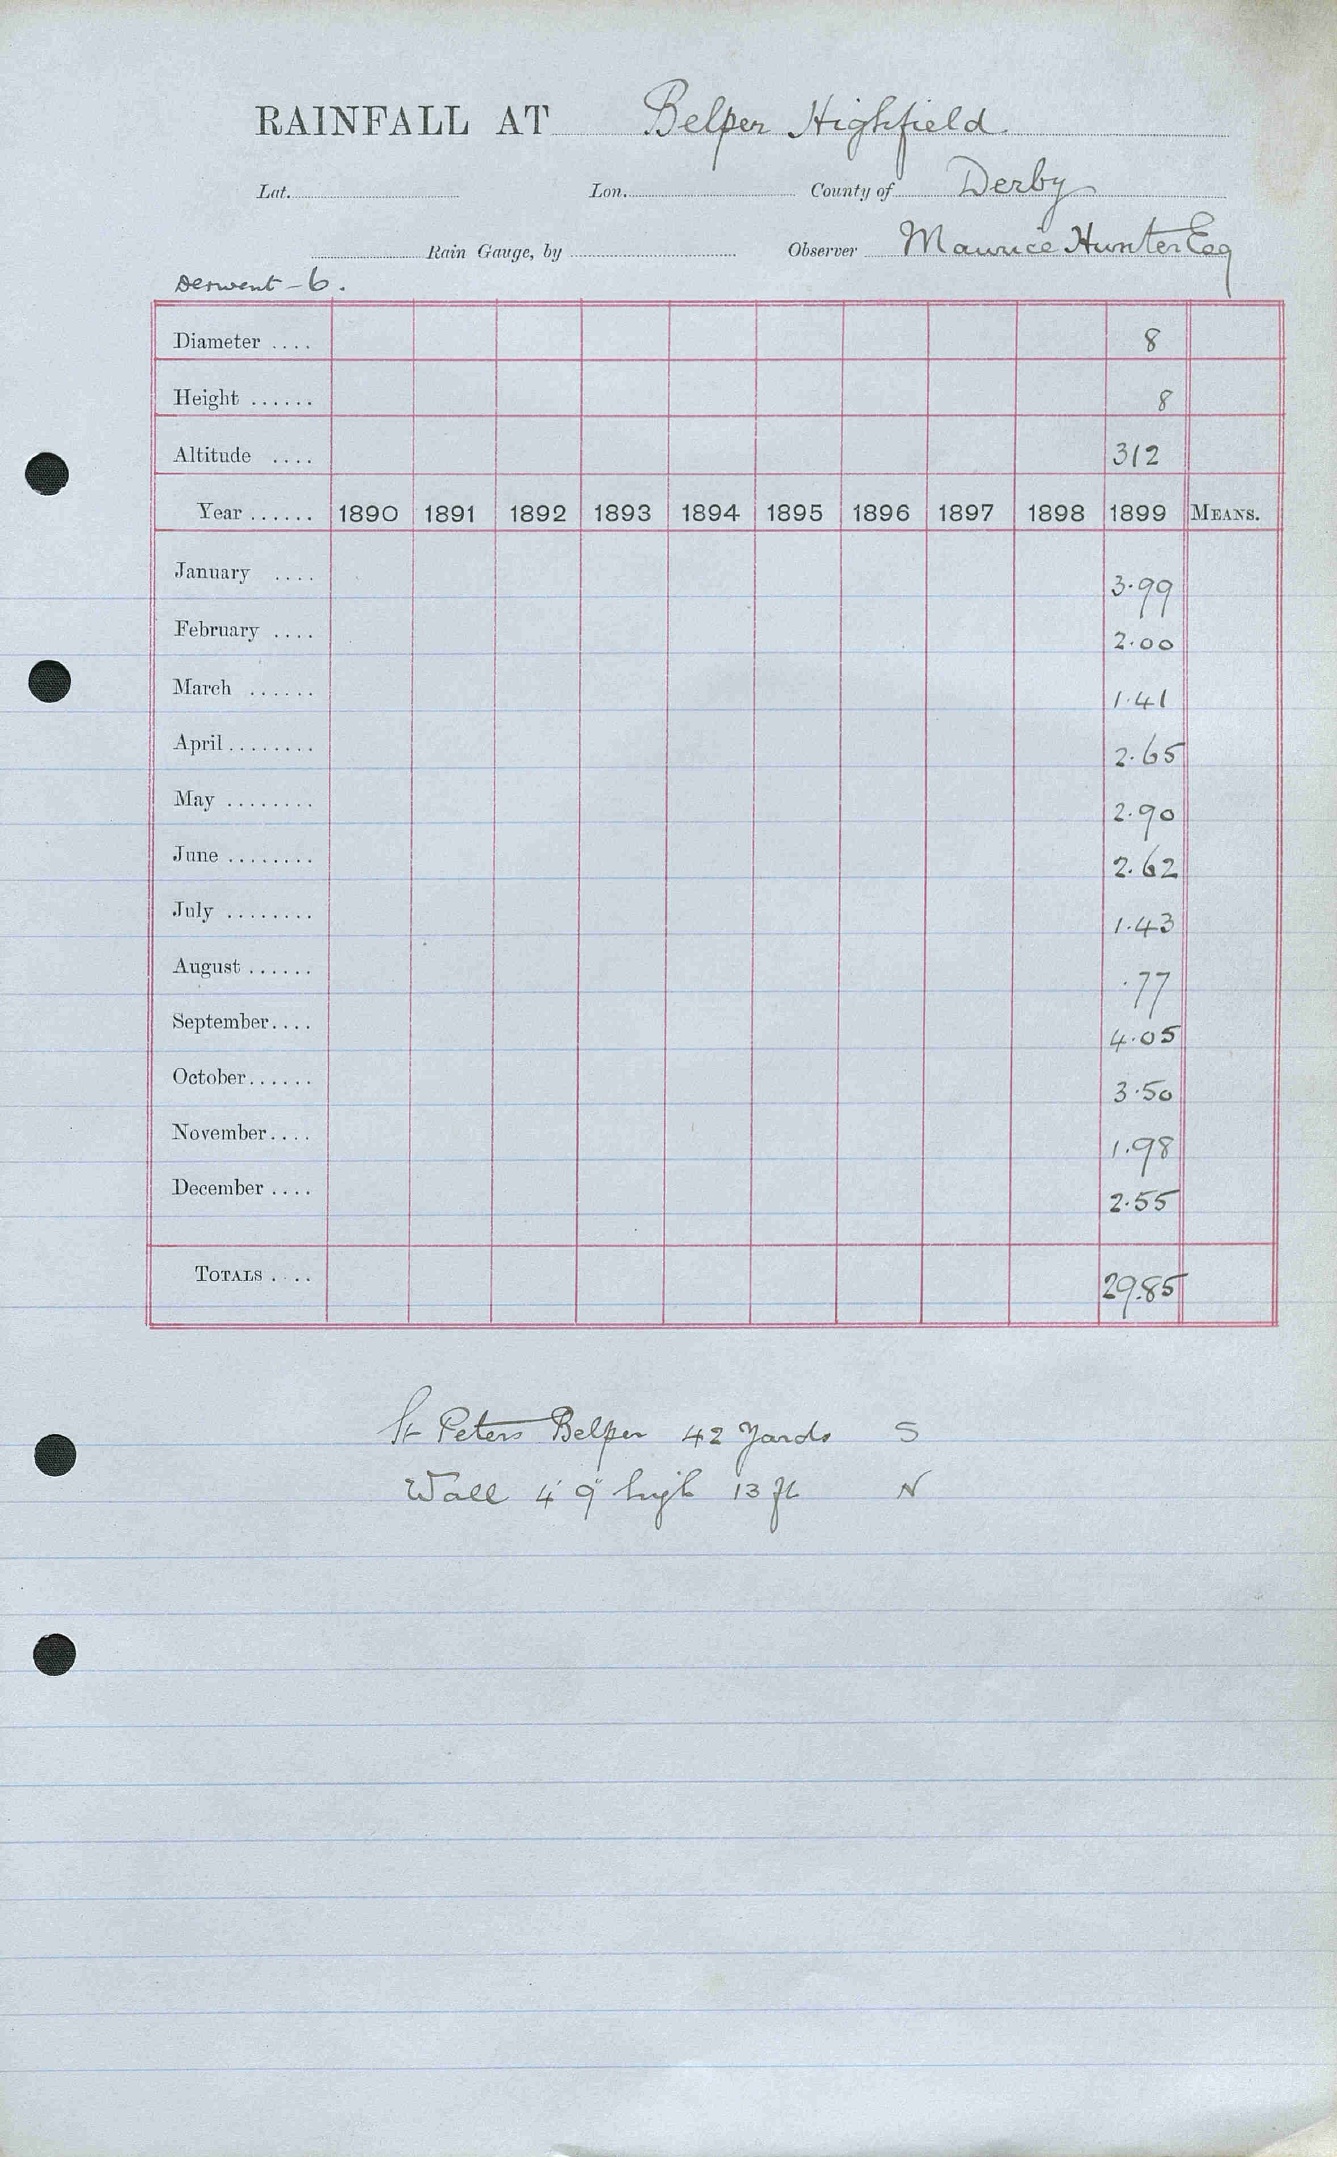 RAINFALL AT Belper Highfield
Lat. Lon. County of Derby
Rain Gauge, by Observer Maurice Hunter Esq
Derwent - 6.
Diameter .... 8
Height ...... 8
Altitude .... 312
Year ...... 1890 1891 1892 1893 1894 1895 1896 1897 1898 1899 MEANS.
January .... 3.99
February .... 2.00
March ...... 1.41
April ........ 2.65
May ........ 2.90
June ........ 2.62
July ........ 1.43
August ...... .77
September.... 4.05
October...... 3.50
November.... 1.98
December .... 2.55
TOTALS .... 29.85
St Peters Belper 42 Yards S
Wall 4' 9" high 13 ft N